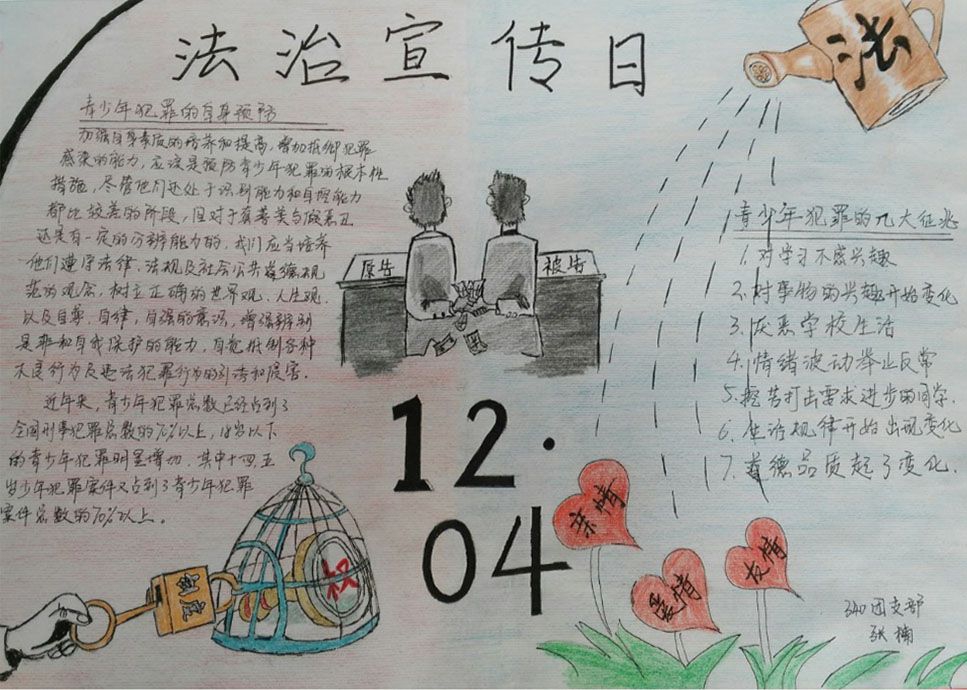 法治宣传日
法
青少年犯罪的自身预防
加强自身素质的培养和提高,增加抵御犯罪
感染的能力,应该是预防青少年犯罪的根本性
措施,尽管他们还处于识别能力和自控能力
都比较差的阶段,但对于真善美与假恶丑
还是有一定的分辨能力的,我们应当培养
他们遵守法律、法规及社会公共道德规
范的观念,树立正确的世界观、人生观,
以及自尊、自律,自强的意识,增强辨别
是非和自我保护的能力,自觉抵制各种
不良行为及违法犯罪行为的引诱和侵害。
近年来,青少年犯罪总数已经占到了
全国刑事犯罪总数的70%以上,18岁以下
的青少年犯罪明显增加.其中十四、五
岁少年犯罪案件又占到了青少年犯罪
案件总数的70%以上。
原告
被告
青少年犯罪的几大征兆
1.对学习不感兴趣
2.对事物的兴趣开始变化
3.厌恶学校生活
4.情绪波动举止反常
5.挖苦打击要求进步的同学.
6.生活规律开始出现变化
7.道德品质起了变化.
12.
04
亲情
爱情
友情
制度
权
340团支部
张楠